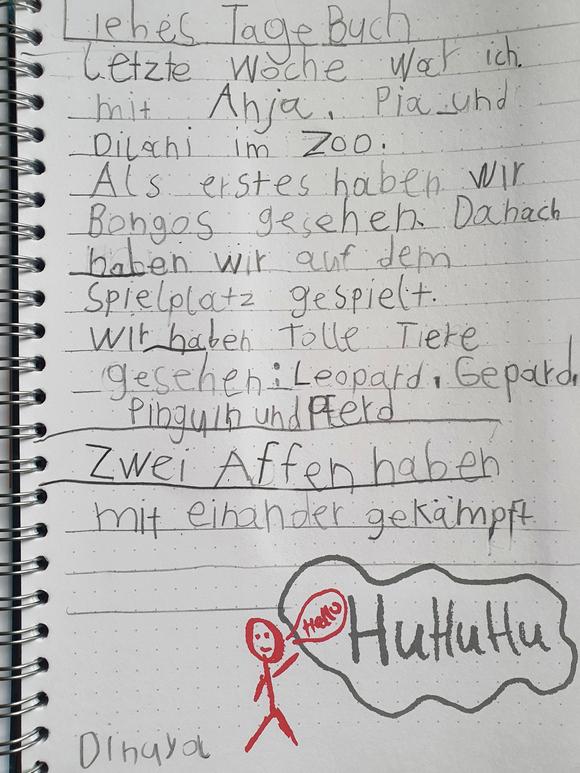 Liebes TageBuch
Letzte Woche war ich.
mit Anja, Pia und
Dilani im Zoo.
Als erstes haben wir
Bongos gesehen. Danach
haben wir auf dem
Spielplatz gespielt.
Wir haben Tolle Tiere
gesehen: Leopard, Gepard,
Pinguin und Pferd
Zwei Affen haben
mit einander gekämpft
Hello
HuHuHu
Dinaya